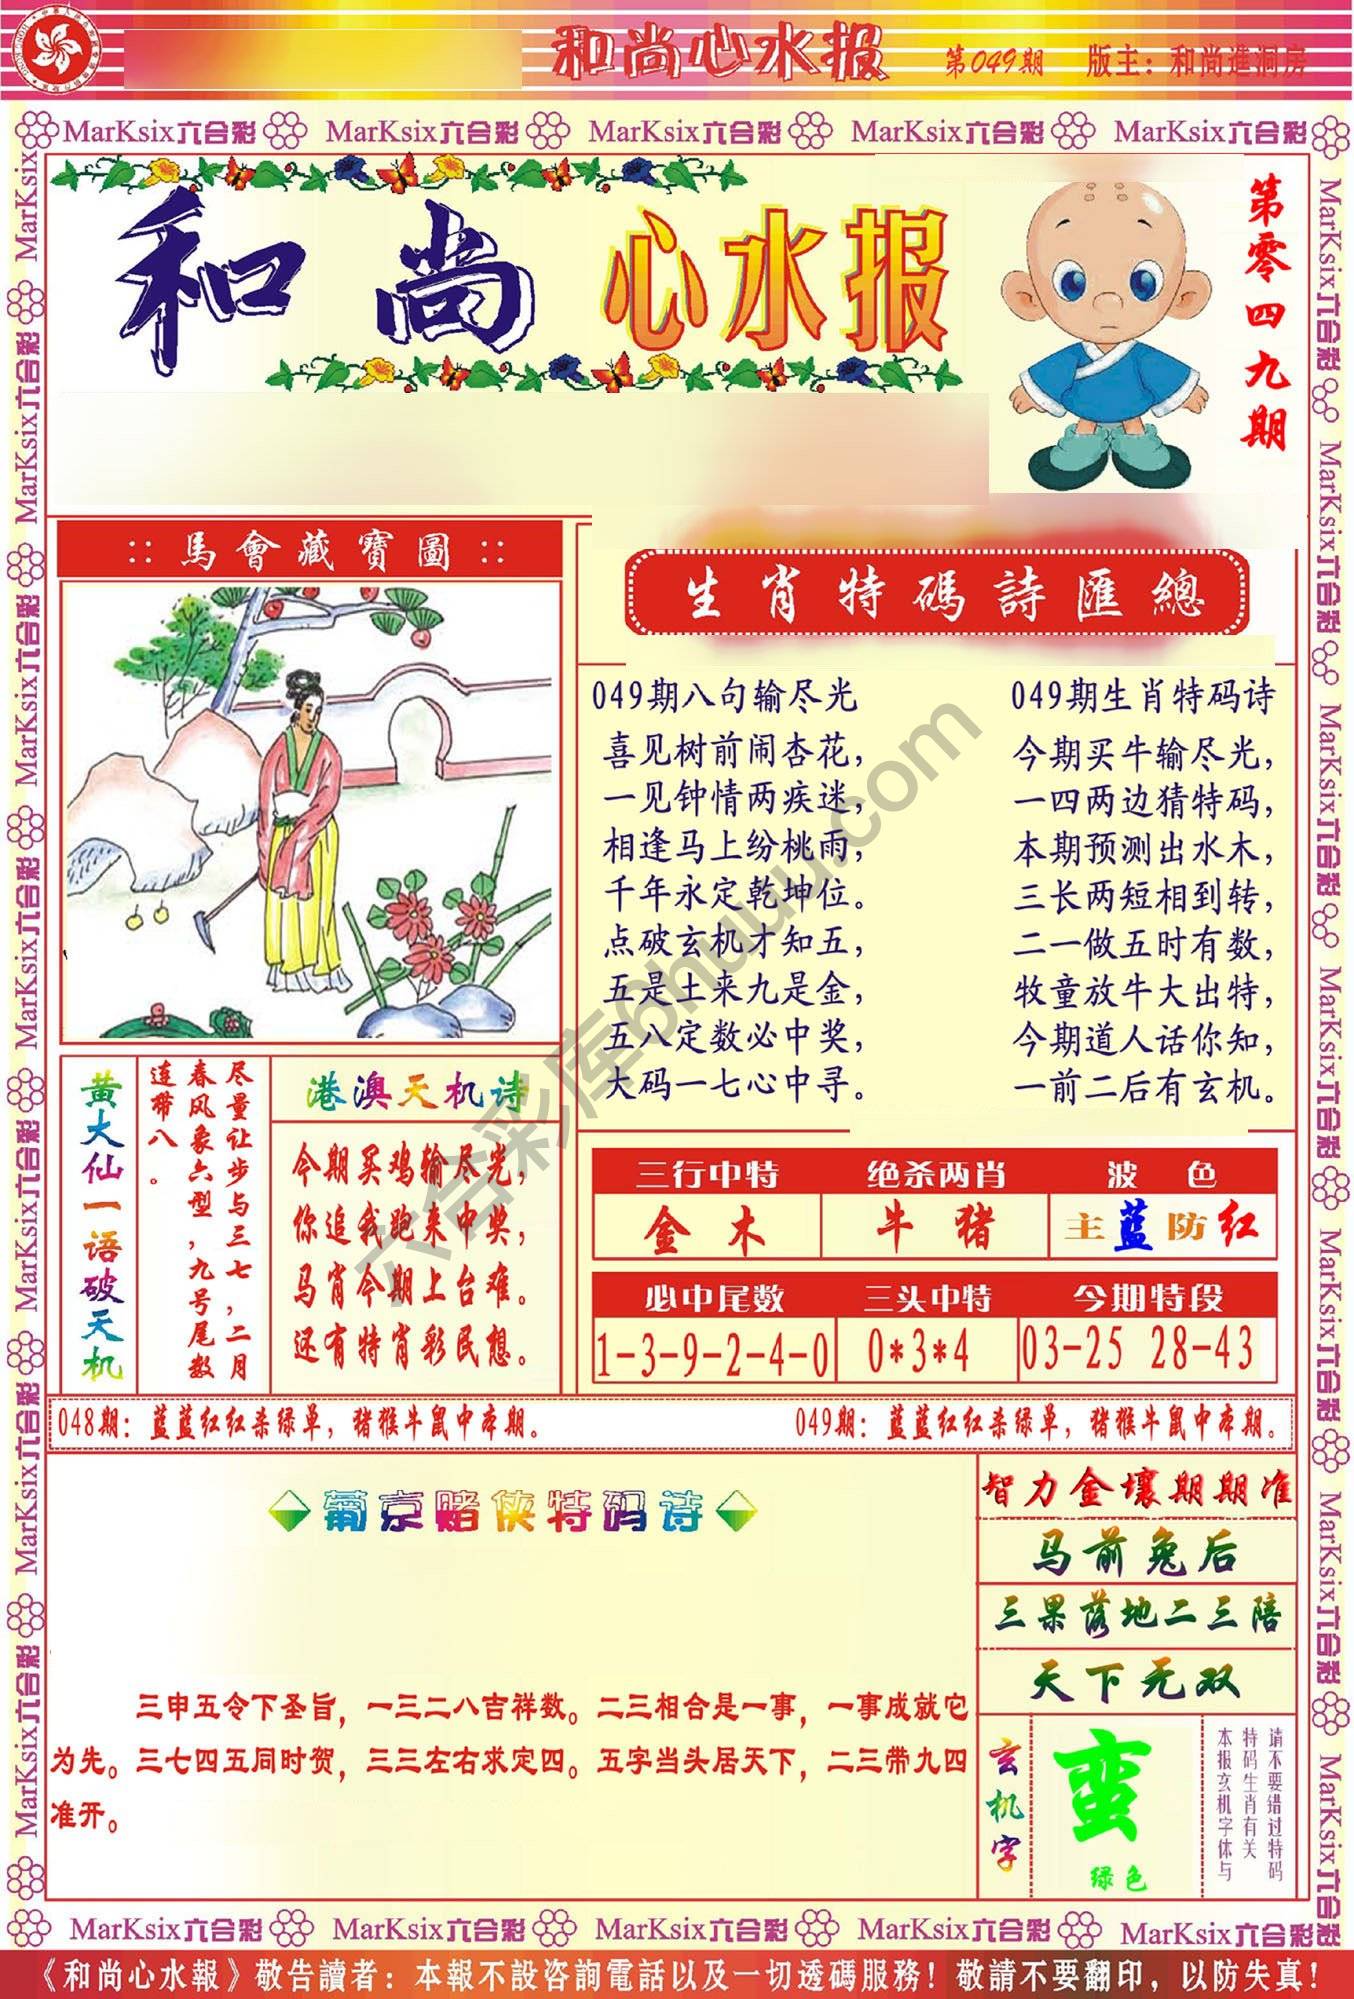 和尚心水报 第049期 版主：和尚進洞房
MarKsix六合彩 MarKsix六合彩 MarKsix六合彩 MarKsix六合彩 MarKsix六合彩
和尚心水报
第零四九期
::馬會藏寶圖::
生肖特碼詩匯總
049期八句输尽光
喜见树前闹杏花，
一见钟情两疾迷，
相逢马上纷桃雨，
千年永定乾坤位。
点破玄机才知五，
五是土来九是金，
五八定数必中奖，
大码一七心中寻。
049期生肖特码诗
今期买牛输尽光，
一四两边猜特码，
本期预测出水木，
三长两短相到转，
二一做五时有数，
牧童放牛大出特，
今期道人话你知，
一前二后有玄机。
黄大仙一语破天机
尽量让步与三七，二月
春风象六型，九号尾数
连带八。
港澳天机诗
今期买鸡输尽光，
你追我跑来中奖，
马肖今期上台难。
还有特肖彩民想。
三行中特 绝杀两肖 波色
金木 牛猪 主蓝防红
必中尾数 三头中特 今期特段
1-3-9-2-4-0 0*3*4 03-25 28-43
048期：蓝蓝红红杀绿单，猪猴牛鼠中本期。 049期：蓝蓝红红杀绿单，猪猴牛鼠中本期。
葡京赌侠特码诗
三申五令下圣旨，一三二八吉祥数。二三相合是一事，一事成就它
为先。三七四五同时贺，三三左右求定四。五字当头居天下，二三带九四
准开。
智力金壤期期准
马前兔后
三果落地二三陪
天下无双
玄机字
蛮
绿色
请不要错过特码
特码生肖有关
本报玄机字体与
六合彩库6huuu.com
MarKsix六合彩 MarKsix六合彩 MarKsix六合彩 MarKsix六合彩 MarKsix六合彩
《和尚心水報》敬告讀者：本報不設咨詢電話以及一切透碼服務！敬請不要翻印，以防失真！